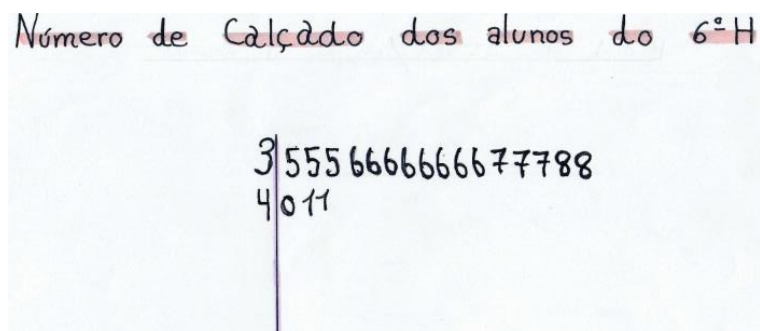 Número de Calçado dos alunos do 6º H
3|5556666666677788
4|011